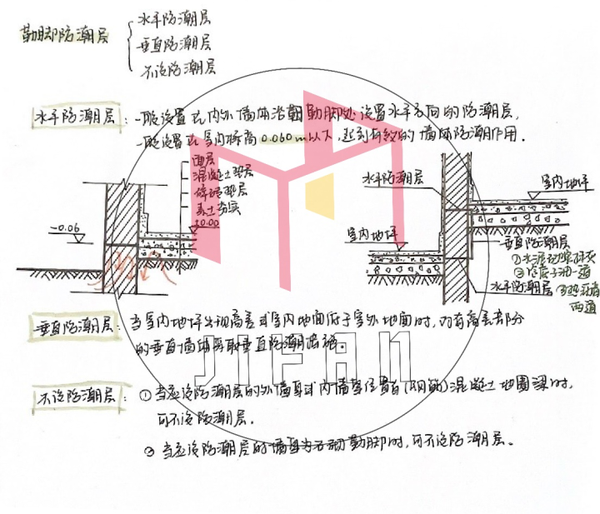 勒脚防潮层
水平防潮层
垂直防潮层
不设防潮层
水平防潮层:一般设置在内外墙体沿着勒脚处设置水平方向的防潮层,
一般设置在室内标高0.060m以下,起到有效的墙体防潮作用。
面层
混凝土垫层
碎砖垫层
素土夯实
±0.00
-0.06
水平防潮层
室内地坪
室内地坪
垂直防潮层
①水泥砂浆
②冷底子油一道
水平防潮层
③热沥青
两道
垂直防潮层:当室内地坪出现高差或室内地面低于室外地面时,对有高差部分
的垂直墙面采取垂直防潮措施。
JIFAN
不设防潮层:①当应设防潮层的外墙或内墙等位置有(钢筋)混凝土地圈梁时,
可不设防潮层。
②当应设防潮层的墙身为石砌勒脚时,可不设防潮层。